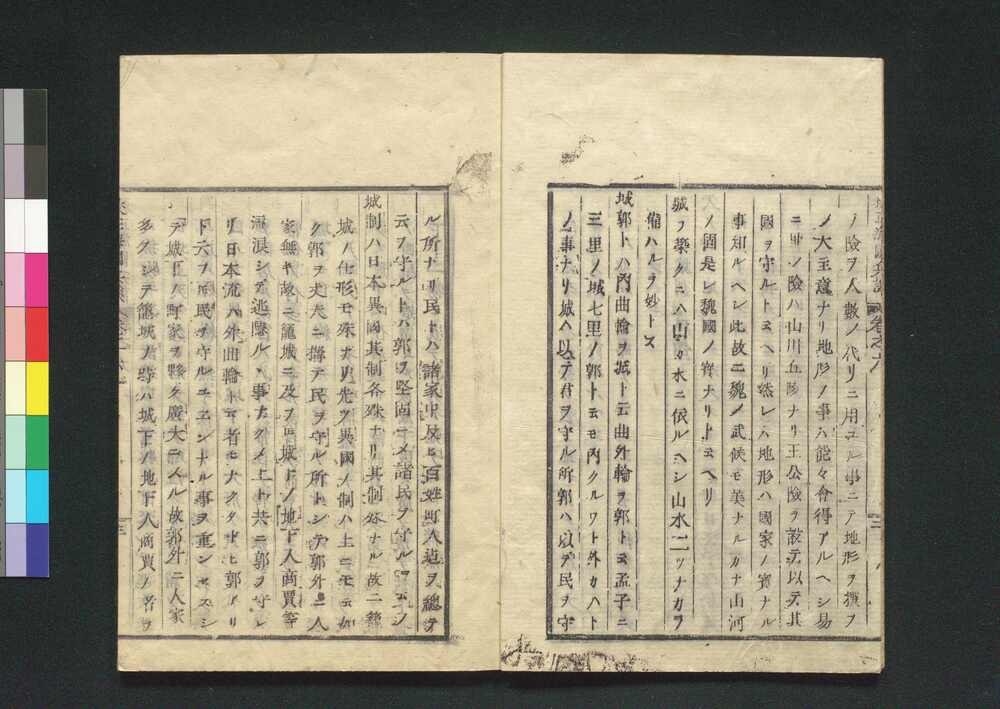 ノ險ヲ人數ノ代リニ用ユル事ニテ地形ヲ撰フ
ノ大主意ナリ地形ノ事ハ能々會得アルヘシ易
ニ曰ク險ハ山川丘陵ナリ王公險ヲ設テ以テ其
國ヲ守ルト云ヘリ然レハ地形ハ國家ノ寳ナル
事知ルヘシ此故ニ魏ノ武候モ美ナルカナ山河
ノ固是レ魏國ノ寳ナリト云ヘリ
城ヲ築クニハ山カ水ニ依ルヘシ山水二ツナカラ
備ハルヲ妙トス
城郭トハ內曲輪ヲ城ト云曲外輪ヲ郭ト云孟子ニ
三里ノ城七里ノ郭ト云モ內クルワト外カハト
ノ事ナリ城ハ以テ君ヲ守ル所郭ハ以テ民ヲ守
ル所ナリ民トハ諸家中及ヒ百姓町人迠ヲ總テ
云フ守ルトハ郭ヲ堅固ニメ諸民ヲ守ルヲ云フ
城制ハ日本異國其制各殊ナリ其制殊ナル故ニ籠
城ノ仕形モ殊ナリ先ヅ異國ノ制ハ上ニモ云如
ク郭ヲ丈夫ニ搆テ民ヲ守ル所トシテ郭外ニ人
家無キ故ニ籠城ニ及テ城下ノ地下人商賈等
流浪シテ逃隱ル丶事ナクメ上ト共ニ郭ヲ守レ
リ日本流ハ外曲輪ト云者モナクタマヒ郭アリ
ト云フ𪜈民ヲ守ル
事ヲ重ンセスシ
テ城下ノ町家ヲ夥ク廣大ニスル故郭外ニ人家
多クシテ籠城ノ時ハ城下ノ地下人商賈ノ者ヲ